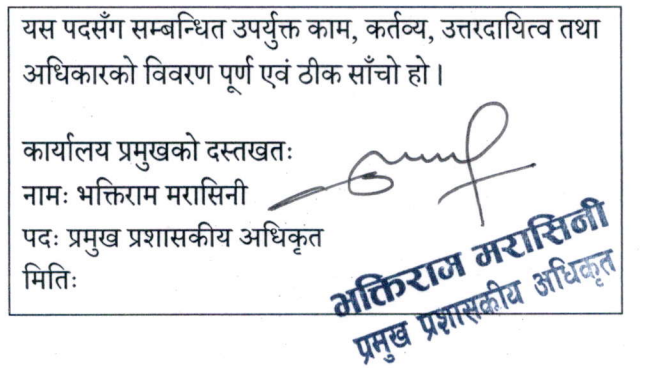 यस पदसँग सम्बन्धित उपर्युक्त काम, कर्तव्य, उत्तरदायित्व तथा
अधिकारको विवरण पूर्ण एवं ठीक साँचो हो ।
कार्यालय प्रमुखको दस्तखतः
नामः भक्तिराम मरासिनी
पदः प्रमुख प्रशासकीय अधिकृत
मितिः
भक्तिराम मरासिनी
प्रमुख प्रशासकीय अधिकृत